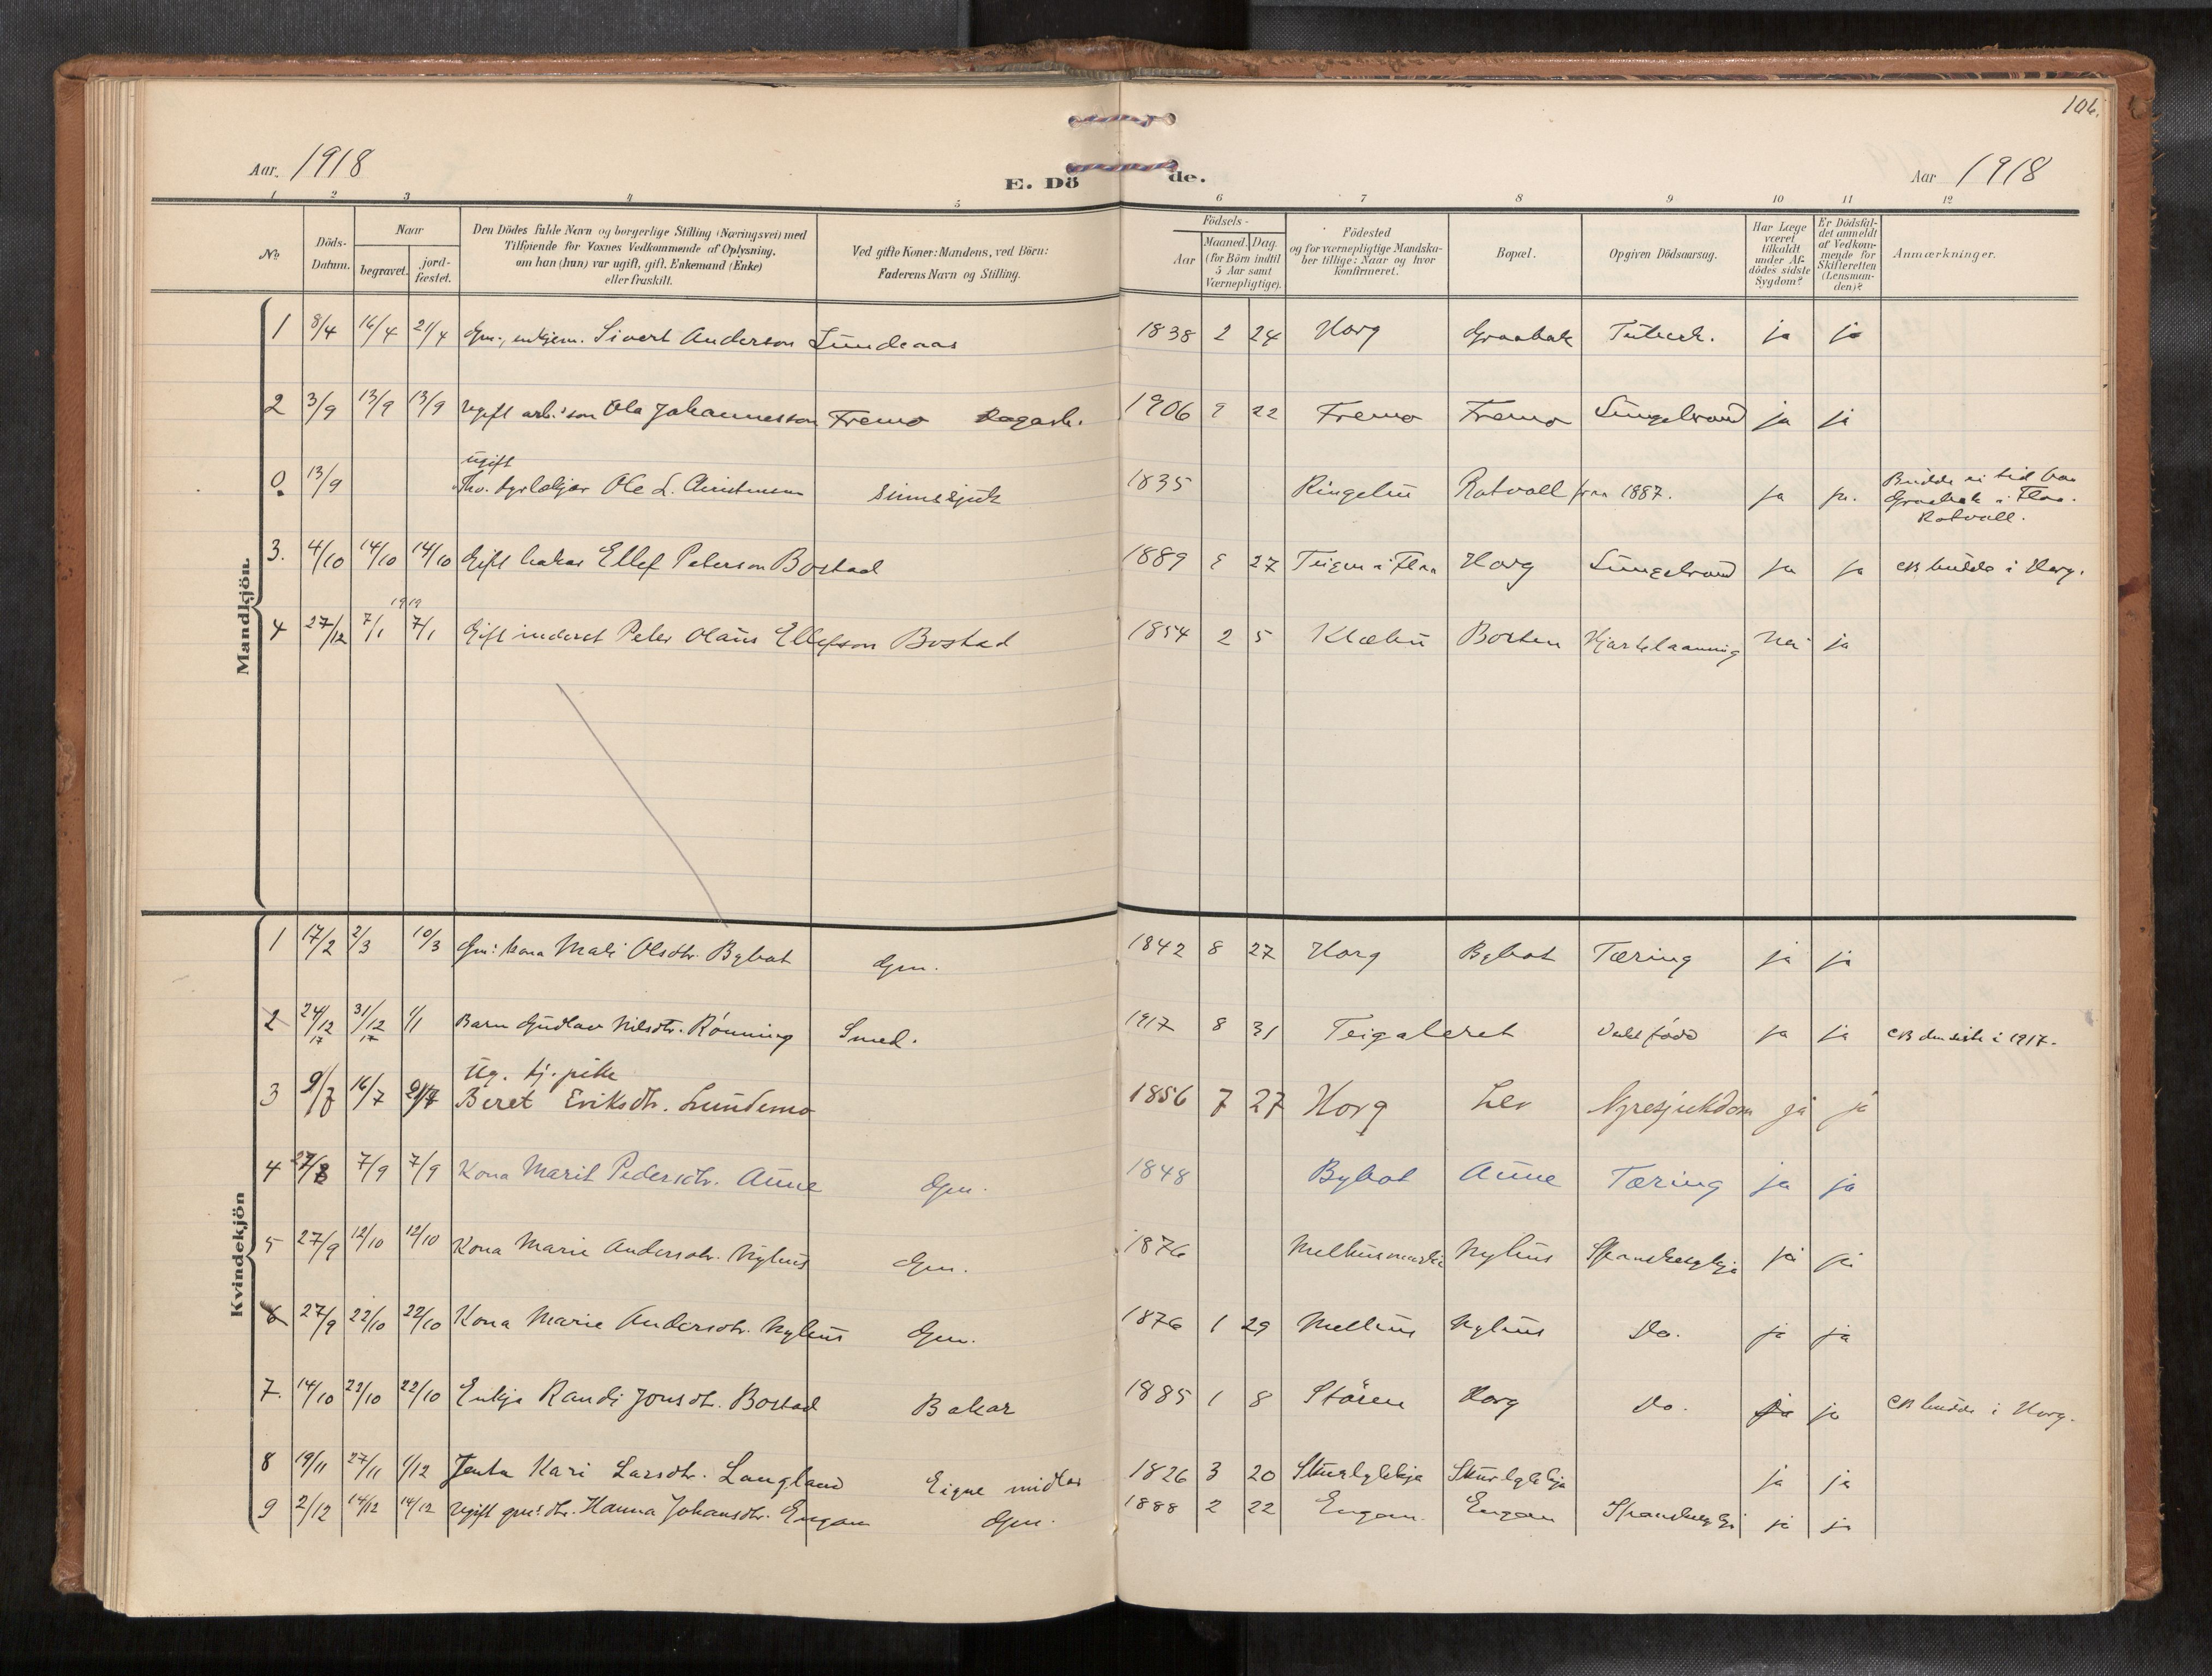 104.
Aar. 1918
E. Dö de.
Aar 1918
1 2 3 4 5 6 7 8 9 10 11 12
No. Döds-Datum. Naar begravet. jord-fæstet. Den Dödes fulde Navn og borgerlige Stilling (Næringsvei) med Tilföiende for Voxnes Vedkommende af Oplysning, om han (hun) var ugift, gift, Enkemand (Enke) eller fraskilt. Ved gifte Koner: Mandens, ved Börn: Faderens Navn og Stilling. Födsels- Aar Maaned. Dag. (for Börn indtil 5 Aar samt Værnepligtige). Födested og for værnepligtige Mandskaber tillige: Naar og hvor Konfirmeret. Bopæl. Opgiven Dödsaarsag. Har Læge været tilkaldt under Afdödes sidste Sygdom? Er Dödsfaldet anmeldt af Vedkommende for Skifteretten (Lensmanden)? Anmærkninger.
Mandkjön.
1 8/4 16/4 21/4 Gm., enkjem. Sivert Anderson Lundeaas 1838 2 24 Horg Graabak Tuberk. ja ja
2 3/9 13/9 13/9 Ugift arb.'son Ola Johannesson Fremo 1906 9 22 Fremo Fremo Lungebrand ja ja
ugift
0. 13/9 Fhv. dyrlækjar Ole L. Christensen sinnssjuk 1835 Ringebu Rotvoll fraa 1887. ja ja. Budde ei tid hos Graabak i Flaa. Rotvoll.
3. 4/10 14/10 14/10 Gift bakar Ellef Peterson Bostad 1889 9 27 Teigen i Flaa Horg Lungebrand ja ja NB budde i Horg.
1919
4 27/12 7/1 7/1 Gift inderst Peter Olaus Ellefson Bostad 1854 2 5 Klæbu Borten Hjartelaaming Nei ja
Kvindekjön
1 17/2 2/3 10/3 Gm: kona Mali Olsdtr. Bybrot Gm. 1842 8 27 Horg Bybrot Tæring ja ja
2 24/12 17 31/12 17 1/1 Barn Gudlav Nilsdtr. Rönning Smed. 1917 8 31 Teigaleret ja ja NB den siste i 1917.
Ug. tj. pike
3 9/7 16/7 21/7 Beret Eriksdtr. Lundemo 1856 7 27 Horg Ler Nyresjukdom ja ja
4 27/8 7/9 7/9 Kona Marit Pedersdtr. Aune Gm. 1848 Bybrot Aune Tæring ja ja
5 27/9 12/10 12/10 Kona Marie Andersdtr. Nyhus Gm. 1876 Melhusmarka Nyhus Spanskesykja ja ja
6 27/9 22/10 22/10 Kona Marie Andersdtr. Nyhus Gm. 1876 1 29 Melhus Nyhus Do. ja ja
7. 14/10 22/10 22/10 Enkja Randi Jonsdtr. Bostad Bakar 1885 1 8 Stören Horg Do. ja ja NB budde i Horg.
8 19/11 27/11 1/12 Jenta Kari Larsdtr. Langland Eigne midlar 1826 3 20 Skurlykkja Skurlykkja ja ja
9 2/12 14/12 14/12 Ugift gm:dtr. Hanna Johansdtr. Engan Gm. 1888 2 22 Engan. Engan ja ja